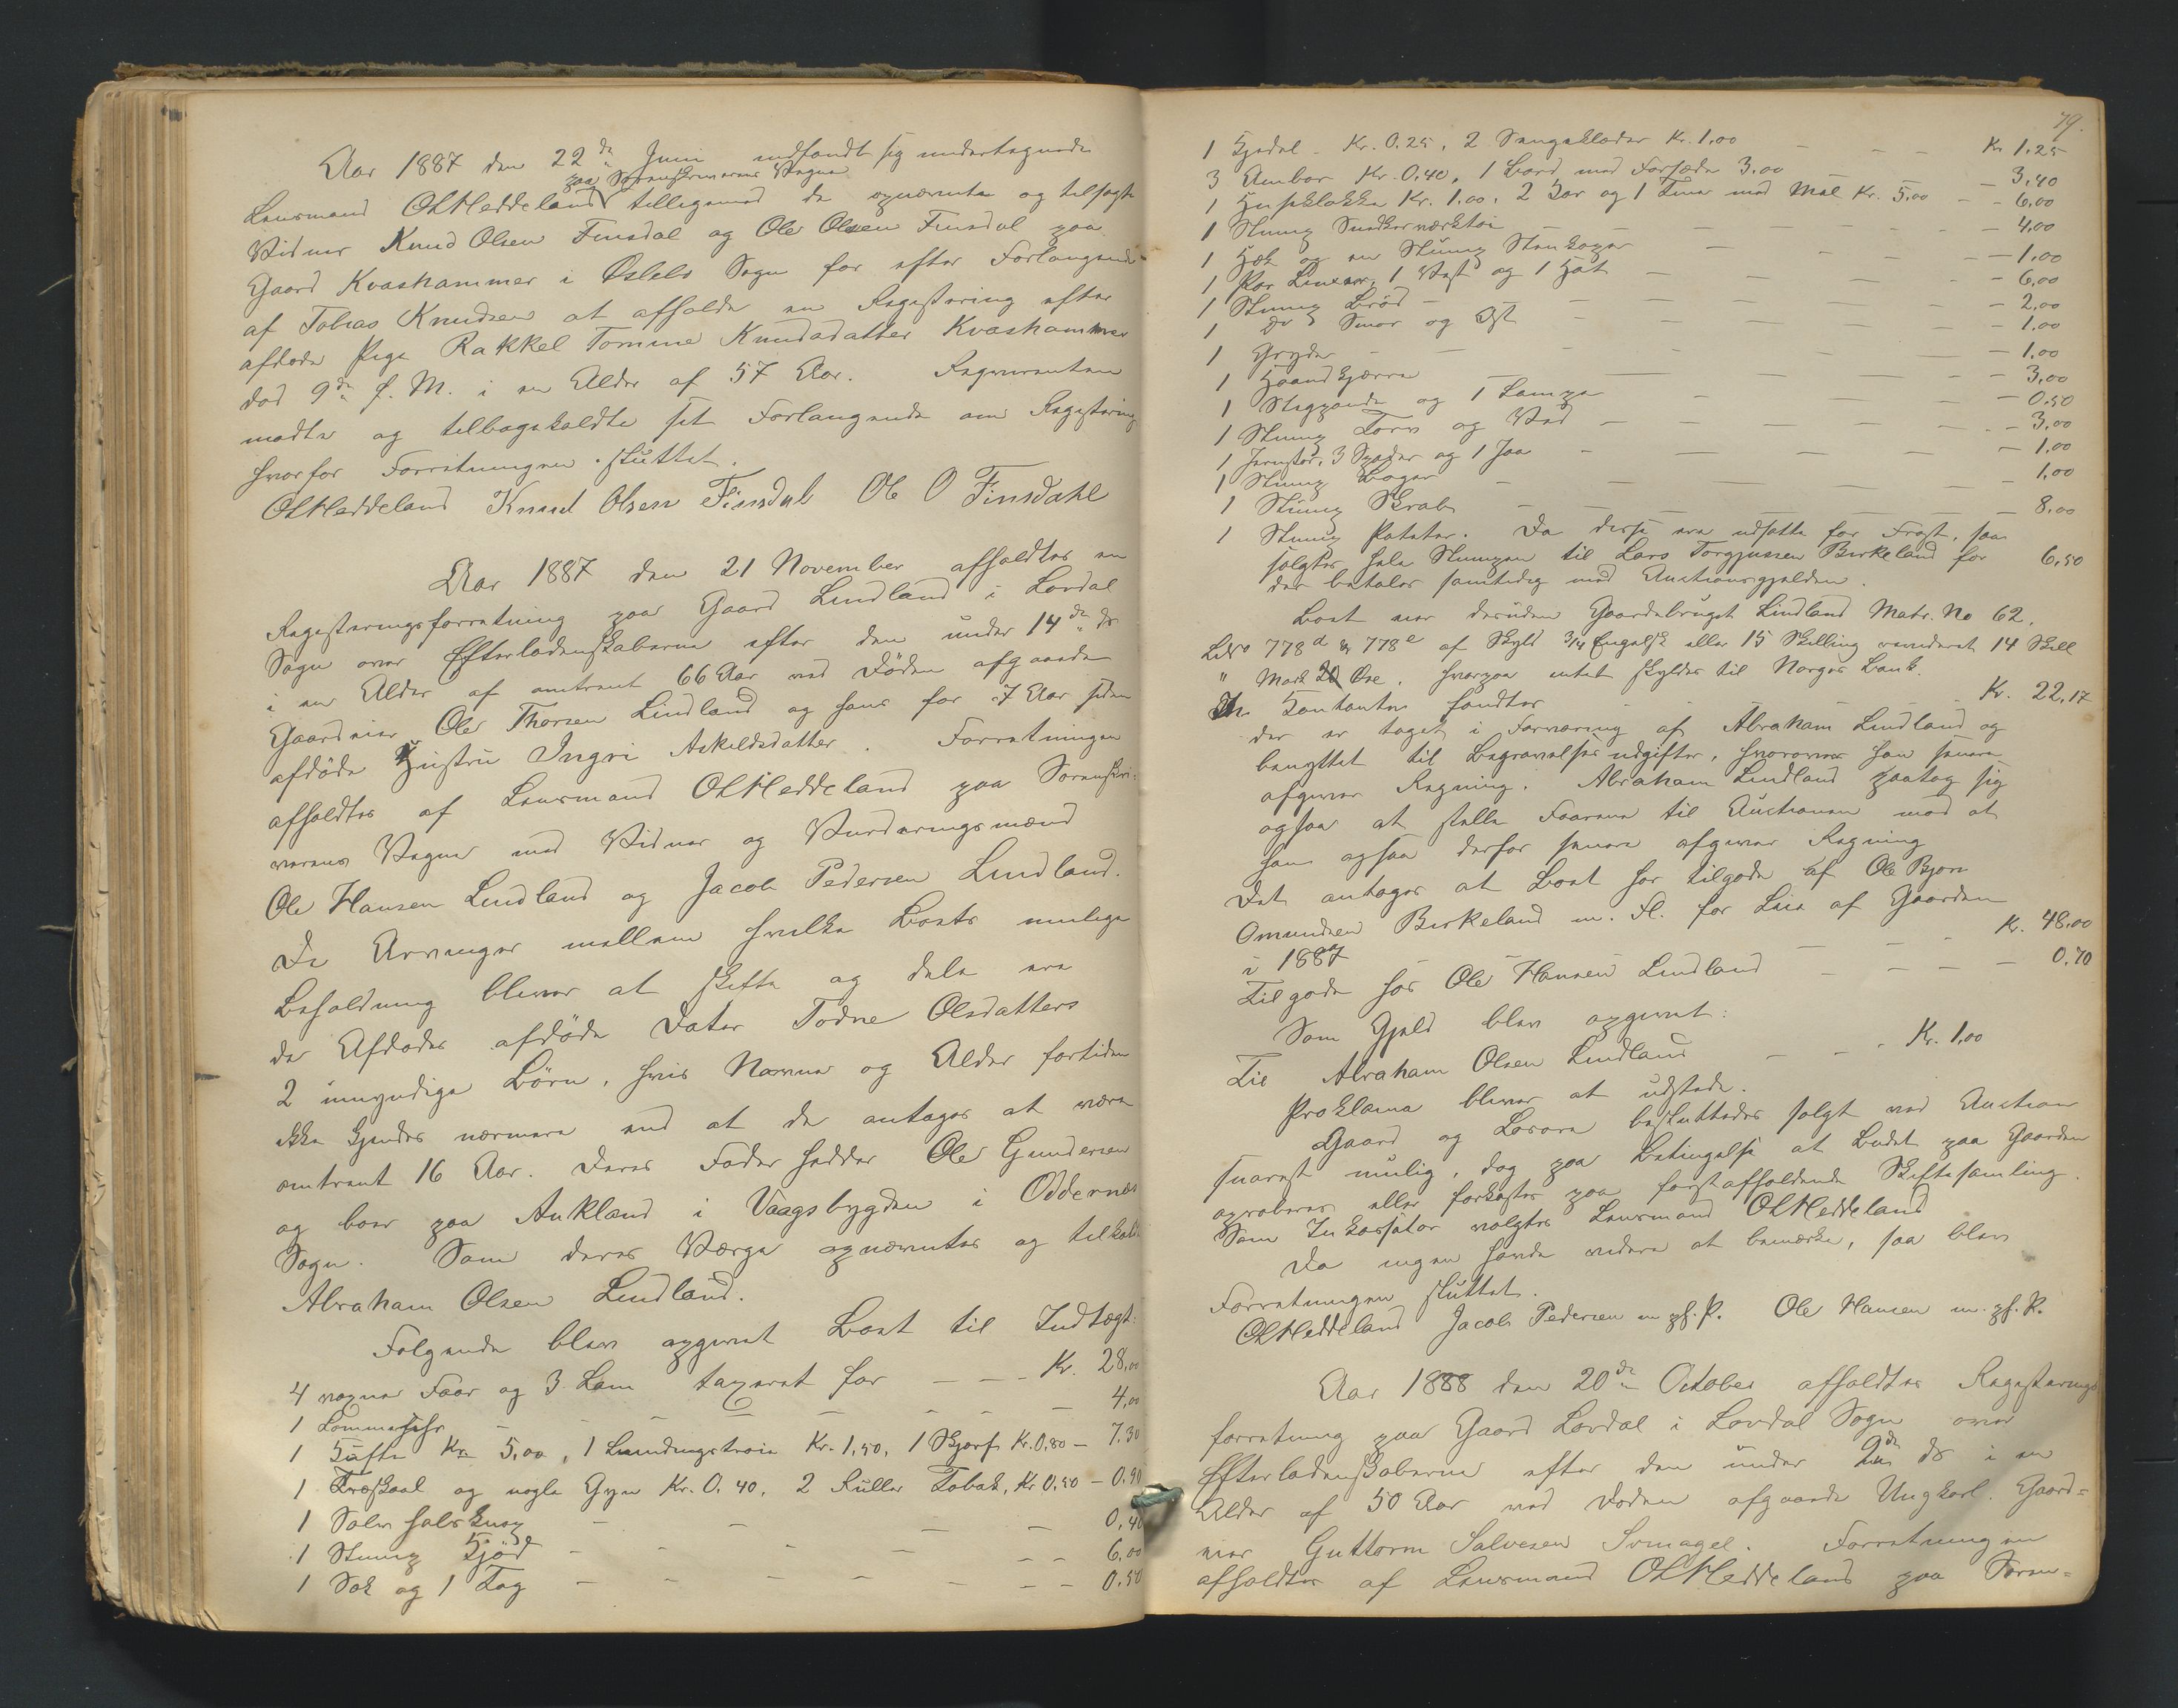 Aar 1887 den 22de Juni indfandt sig undertegnede
paa Sorenskriverens Vegne
Lensmand OLHeddeland tilligemed de opnævnte og tilsagte
Vidner Knud Olsen Finsdal og Ole Olsen Finsdal paa
Gaard Kvashammer i Øslebø Sogn for efter Forlangende
af Tobias Knudsen at afholde en Registering efter
afdøde Pige Rakkel Tomine Knudsdatter Kvashammer
død 9de d. M. i en Alder af 57 Aar. Reqvirenten
mødte og tilbagekaldte sit Forlangende om Registering
hvorfor Forretningen sluttet.
OLHeddeland Knud Olsen Finsdal Ole O Finsdahl
Aar 1887 den 21 November afholdtes en
Registeringsforretning paa Gaard Lindland i Løvdal
Sogn over Efterladenskaberne efter den under 14de ds
i en Alder af omtrent 66 Aar ved Døden afgaaede
Gaardeier Ole Thorsen Lindland og hans for 7 Aar siden
afdøde Hustru Ingri Askildsdatter. Forretningen
afholdtes af Lensmand OLHeddeland paa Sorenskri-
verens Vegne med Vidner og Vurderingsmænd
Ole Hansen Lindland og Jacob Pedersen Lindland.
De Arvinger mellem hvilke Boets mulige
Beholdning bliver at skifte og dele ere
de Afdødes afdøde Dater Todne Olsdatters
2 umyndige Börn, hvis Navne og Alder fortiden
ikke kjendes nærmere end at de antages at være
omtrent 16 Aar. Deres Fader hedder Ole Gundersen
og boer paa Aukland i Vaagsbygden i Oddernes
Sogn. Som deres Værge opnævntes og tilkaldt
Abraham Olsen Lindland.
Følgende blev opgivet Boet til Indtægt:
4 voxne Faar og 3 Lam taxeret for - - - Kr. 28,00
1 Lommeuhr - - - - - 4,00
1 Kufte Kr 5,00, 1 Lundingströie Kr. 1,50, 1 Skjerf Kr. 0,80 - 7.30
1 Træskaal og nogle Gryn Kr. 0,40, 2 Ruller Tobak, Kr 0,50 - 0.90
1 Sølv halsknap - - - - 0,40
1 Slump Kjöd - - - - - 6,00
1 Sæk og 1 Tog - - - - - 0.50
79.
1 Kjedel Kr. 0.25, 2 Sengeklæder Kr. 1,00 - - - Kr 1.25
3 Ambar Kr. 0,40, 1 Bord med Forsæde 3.00 - 3,40
1 Husklokke Kr. 1.00, 2 Kar og 1 Tine med Mel Kr. 5,00 - - 6,00
1 Slump Snedkerværktøi - - - - 4,00
1 Hæk og en Slump Stenkoger - - - 1.00
1 Par Buxer, 1 Vest og 1 Hat - - - 6,00
1 Slump Bröd - - - - 2,00
1 Do Smør og Ost - - - - 1.00
1 Gryde - - - - - 1.00
1 Haandkjærre - - - - 3,00
1 Stegpande og 1 Lampe - - - 0.50
1 Slump Torv og Ved - - - - 3,00
1 Jernstør, 3 Spader og 1 Ljaa - - - 1,00
1 Slump Bøger - - - - 1,00
1 Slump Skrab - - - - 8.00
1 Slump Poteter. Da disse ere udsatte for Frost, saa
solgtes hele Slumpen til Lars Torgjussen Birkeland for 6.50
der betales samtidig med Auctionsgjælden.
Boet eier desuden Gaardsbruget Lindland Matr. No 62.
LNo 778d & 778e af Skyld 3/14 Engelsk eller 15 Skilling revideret 14 Skill
" Mark 20 Øre, hvorpaa intet skyldes til Norges Bank.
In Kontanter fandtes - - Kr. 22,17
der er taget i Forvaring af Abraham Lindland og
benyttet til Begravelsesudgifter, hvorover han senere
afgiver Regning. Abraham Lindland paatog sig
ogsaa at stelle Faarene til Auctionen mod at
han ogsaa derfor senere afgiver Regning
Det antages at Boet har tilgode af Ole Bjørn
Omundsen Birkeland m. Fl. for Leie af Gaarden
i 1887 - - - Kr. 48,00
Tilgode hos Ole Hansen Lindland - - - - 0.70
Som Gjeld blev opgivet:
Til Abraham Olsen Lindland - - - Kr. 1,00
Proklama bliver at udstede.
Gaard og Løsøre besluttedes solgt ved Auction
snarest mulig, dog paa Betingelse at Budet paa Gaarden
approberes eller forkastes paa førstafholdende Skiftesamling.
Som Inkassator valgtes Lensmand OLHeddeland
Da ingen havde videre at bemærke, saa blev
Forretningen sluttet.
OLHeddeland Jacob Pedersen m. p. P. Ole Hansen m. p. P.
Aar 1888 den 20de October afholdtes Registerings-
forretning paa Gaard Løvdal i Løvdal Sogn over
Efterladenskaberne efter den under 2de ds i en
Alder af 50 Aar ved Døden afgaaede Ungkarl, Gaard-
eier Guttorm Salvesen Ivmagel. Forretningen
afholdtes af Lensmand OLHeddeland paa Soren-